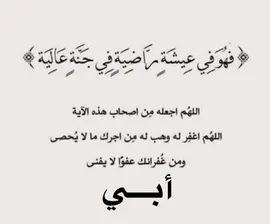 ﴿ فَهُوَ فِي عِيشَةٍ رَّاضِيَةٍ فِي جَنَّةٍ عَالِيَة ﴾
اللهُم اجعله مِن اصحاب هذه الآية
اللهُم اغفِر له وهب له مِن اجرك ما لا يُحصى
ومن غُفرانك عفوًا لا يفنى
أبــي